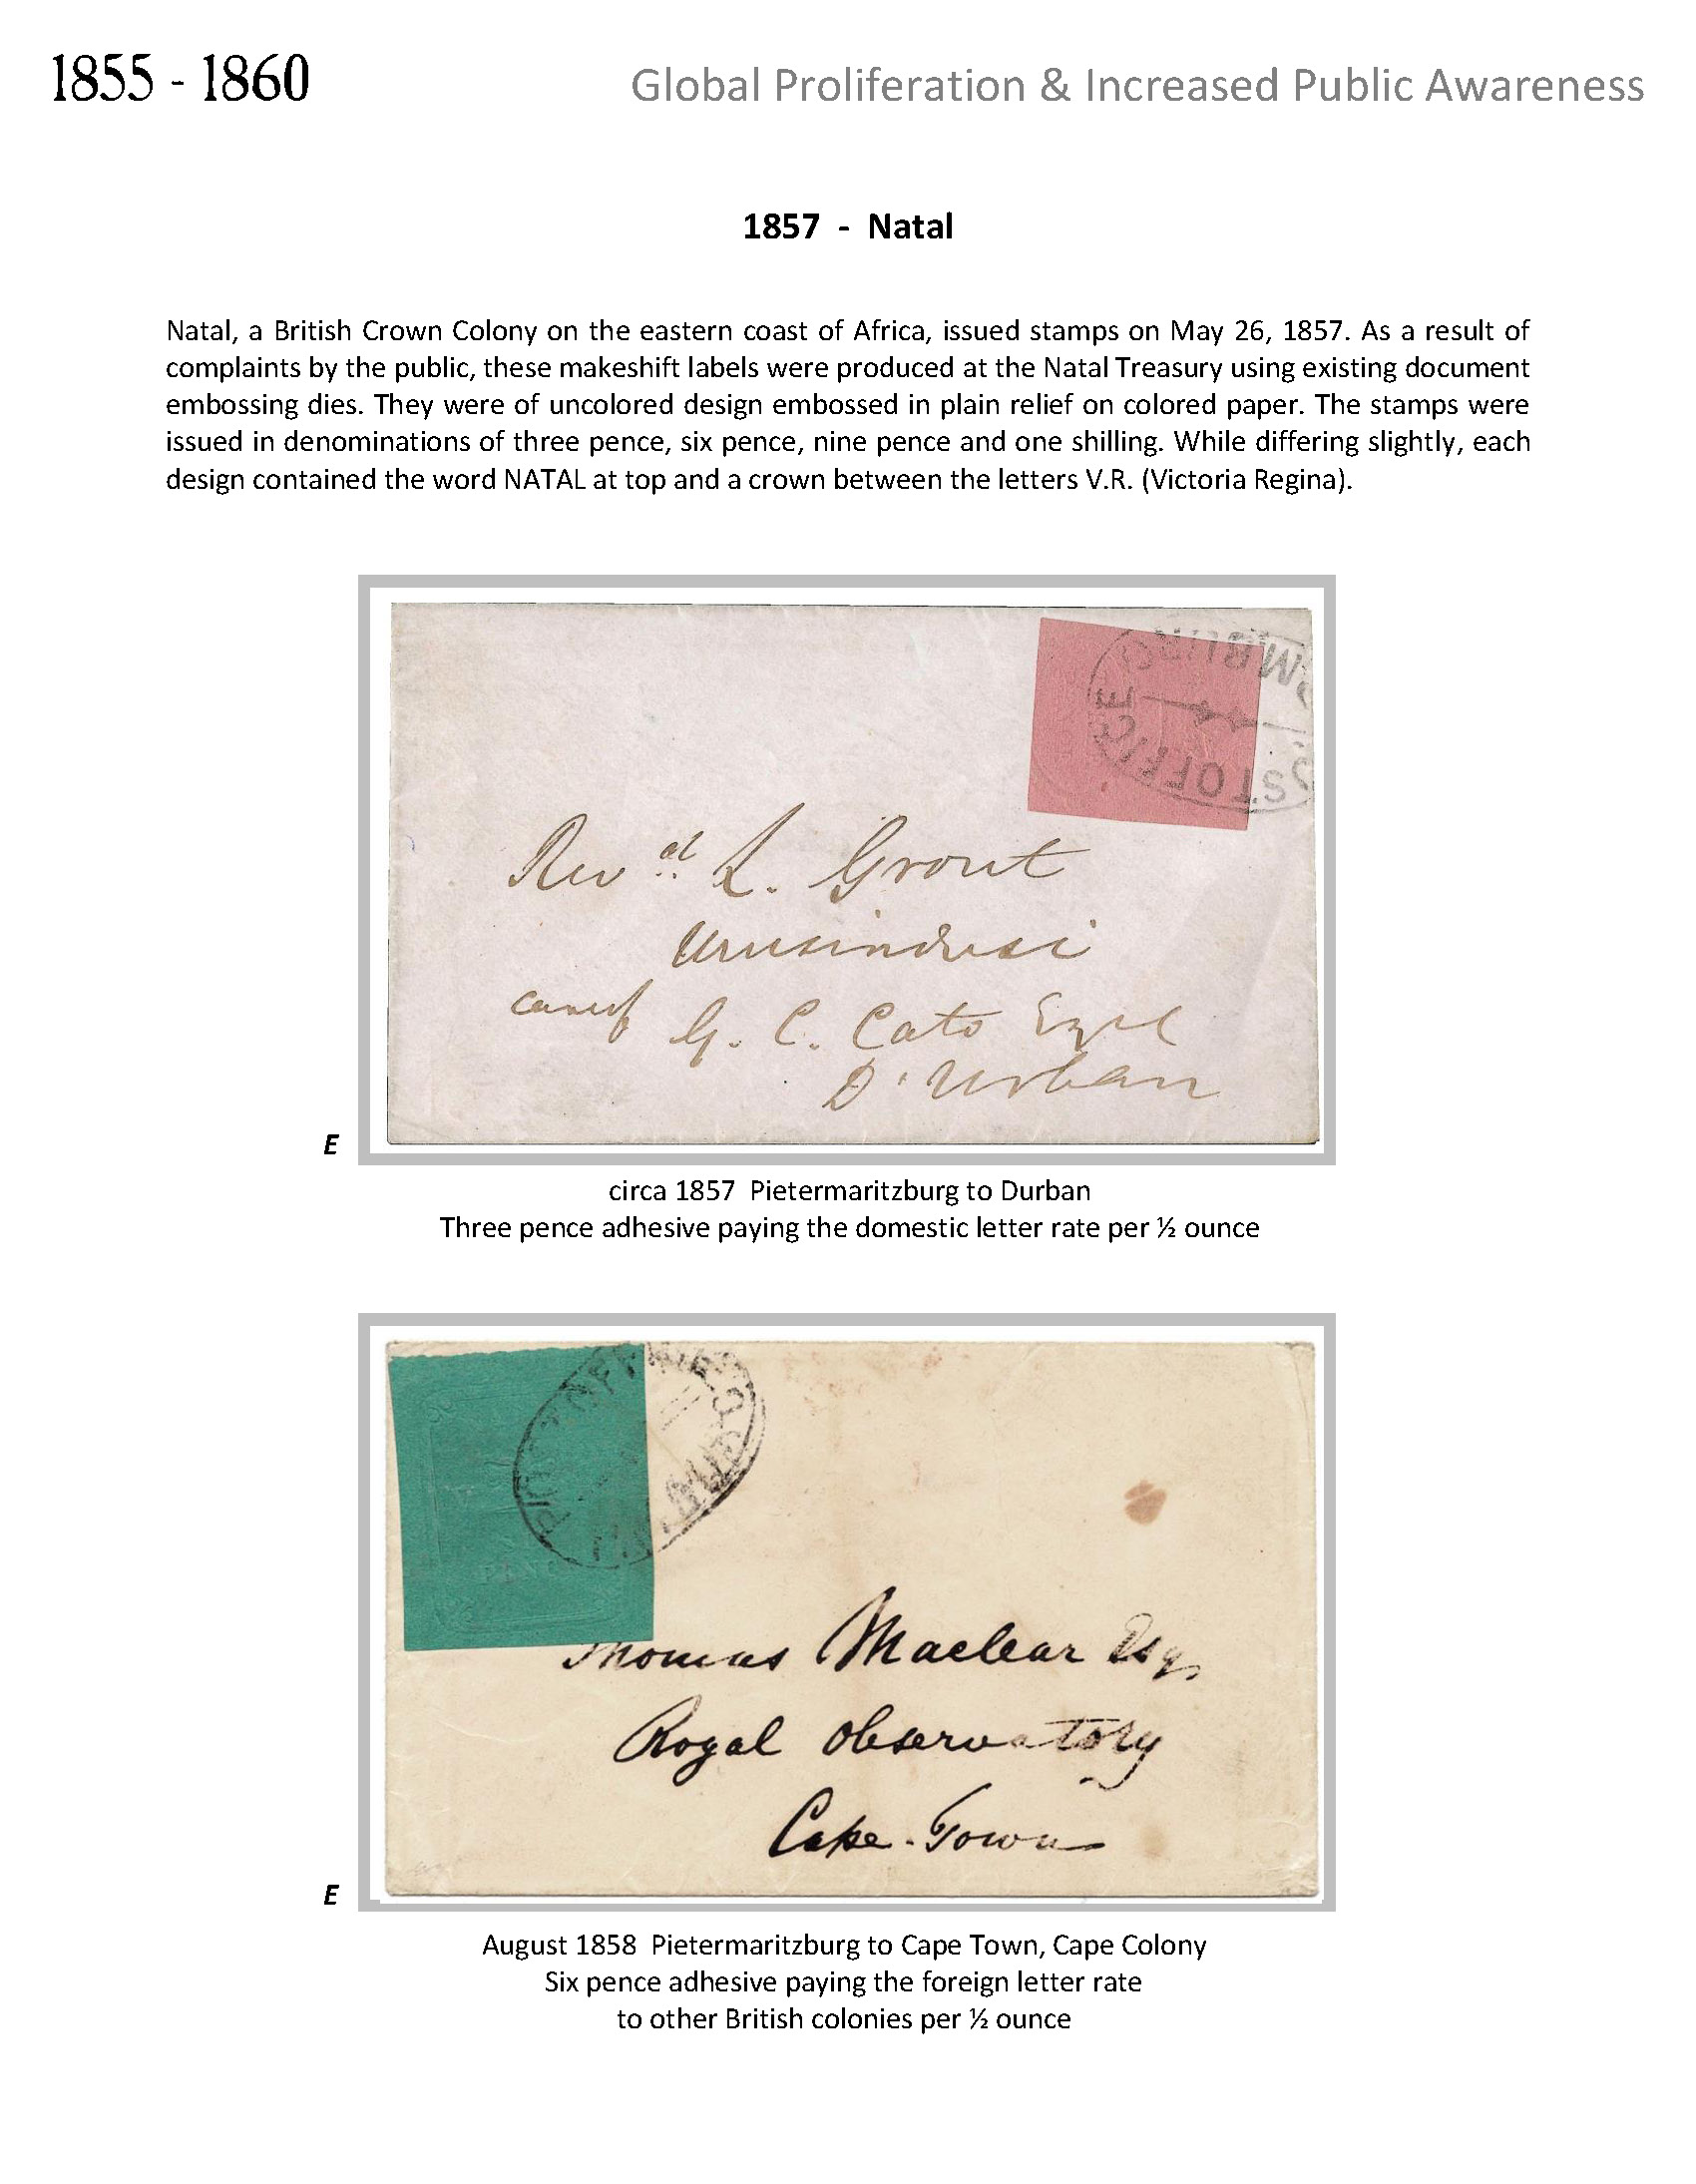 1855 - 1860
Global Proliferation & Increased Public Awareness
1857 - Natal
Natal, a British Crown Colony on the eastern coast of Africa, issued stamps on May 26, 1857. As a result of
complaints by the public, these makeshift labels were produced at the Natal Treasury using existing document
embossing dies. They were of uncolored design embossed in plain relief on colored paper. The stamps were
issued in denominations of three pence, six pence, nine pence and one shilling. While differing slightly, each
design contained the word NATAL at top and a crown between the letters V.R. (Victoria Regina).
Revd L. Grout
Umsindusi
care of G. C. Cato Esqre
D'Urban
E
circa 1857 Pietermaritzburg to Durban
Three pence adhesive paying the domestic letter rate per ½ ounce
Thomas Maclear Esq,
Royal Observatory
Cape-Town
E
August 1858 Pietermaritzburg to Cape Town, Cape Colony
Six pence adhesive paying the foreign letter rate
to other British colonies per ½ ounce